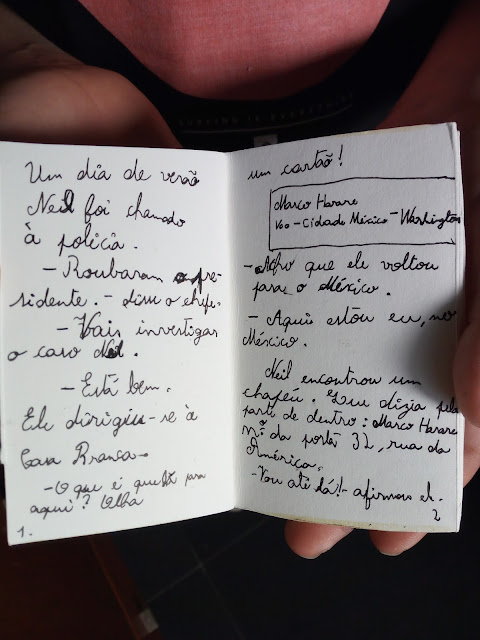 Um dia de verão
Neil foi chamado
à polícia.
- Roubaram o pre-
sidente. - disse o chefe.
- Vais investigar
o caso Neil.
- Está bem.
Ele dirigiu-se à
Casa Branca.
- O que é que está para
aqui? Olha
1.
um cartão!
Marco Harare
Voo - Cidade México - Washington
- Acho que ele voltou
para o México.
- Aqui estou eu, no
México.
Neil encontrou um
chapéu. Que dizia pela
parte de dentro: Marco Harare
nº da porta 32, rua da
América.
- Vou até lá! - afirmou el-
2